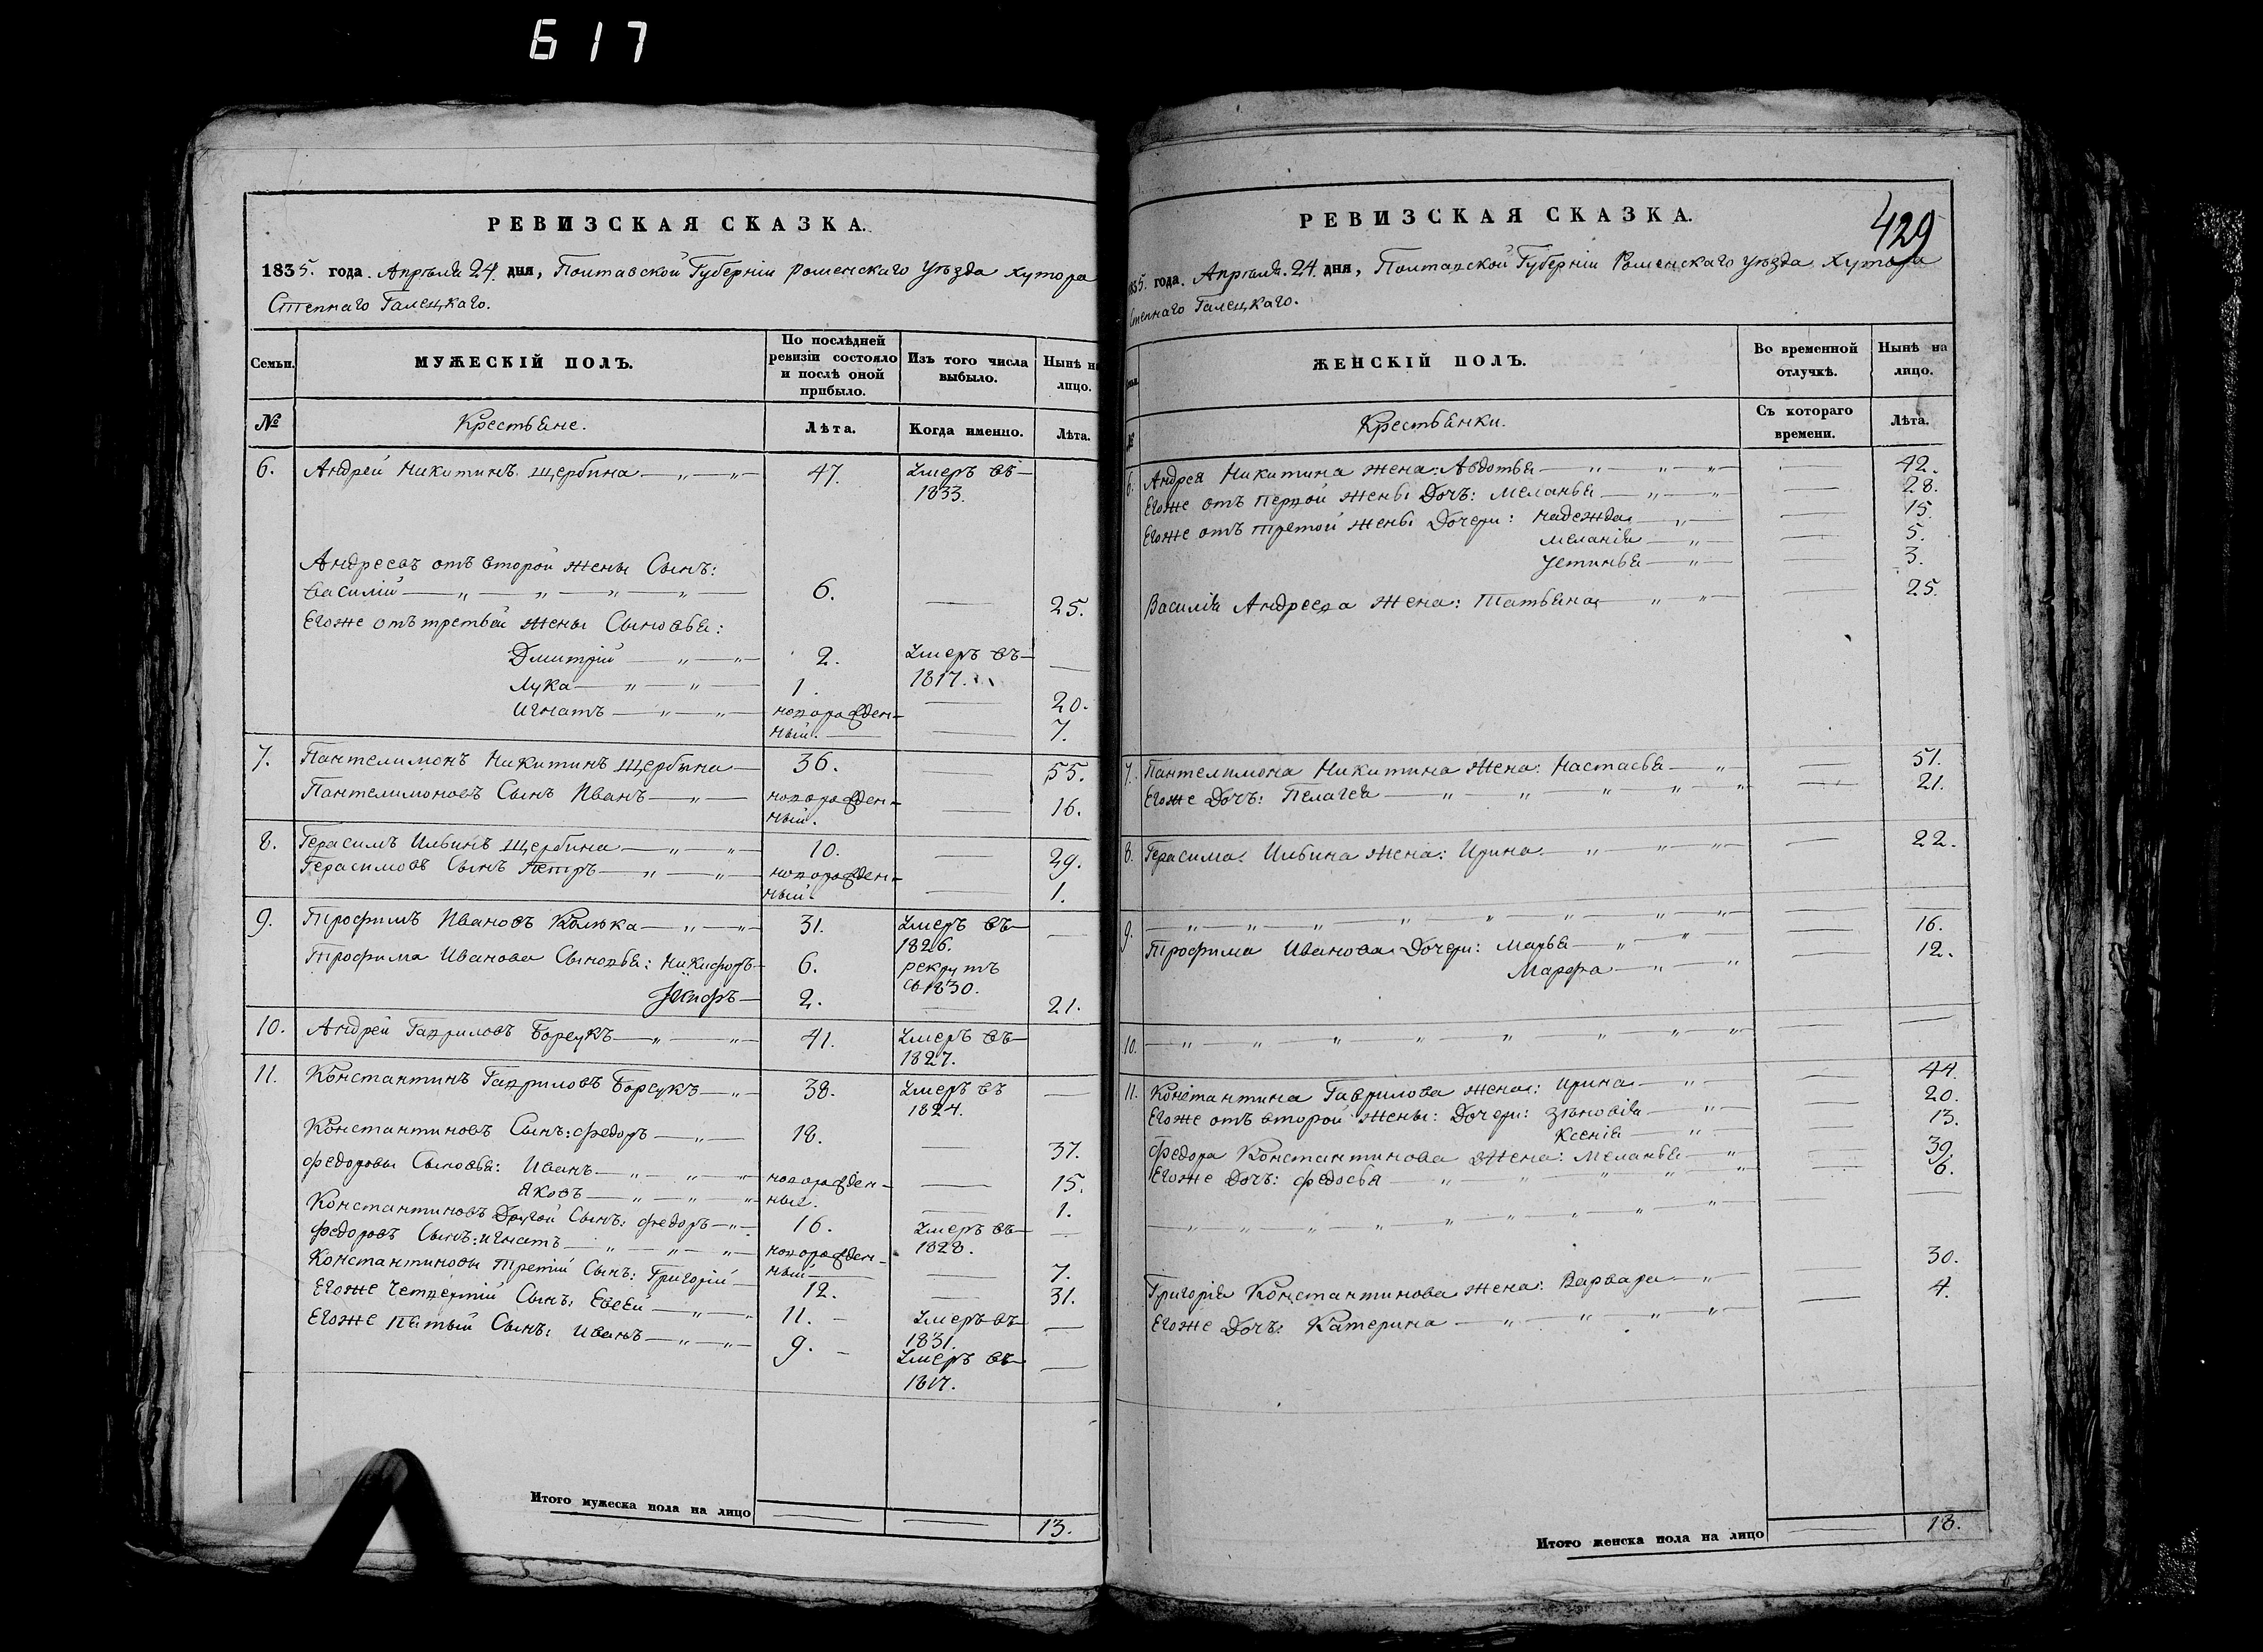 617
РЕВИЗСКАЯ СКАЗКА.
1835. года. Апреля 24. дня, Полтавской Губерніи роменскаго уѣзда хутора
Степнаго Галецкаго.
Семьи.
МУЖЕСКІЙ ПОЛЪ.
По послѣдней ревизіи состояло и послѣ оной прибыло.
Изъ того числа выбыло.
Нынѣ на лицо.
№
Крестьяне.
Лѣта.
Когда именно.
Лѣта.
6. Андрей Никитинъ щербина — „ — „ — 47. Умеръ въ —
1833.
Андреевъ отъ второй жены Сынъ:
Василій — „ — „ — „ — „ — 6. — 25.
Егоже отъ третьей жены Сыновья:
Дмитрій — „ — „ — 2. Умеръ въ — —
1817.
Лука — „ — „ — 1. — 20.
Игнатъ — „ — „ — новорожден-
ный. — — 7.
7. Пантелимонъ Никитинъ щербина — 36. — 55.
Пантелимоновъ Сынъ Иванъ — „ — новорожден-
ный. — 16.
8. Герасимъ Ильинъ щербина — „ — „ — 10. — 29.
Герасимовъ Сынъ Петръ — „ — „ — новорожден-
ный. — 1.
9. Трофимъ Ивановъ Колюка — „ — „ — 31. Умеръ въ — —
1826.
Трофима Иванова Сыновья: Никифоръ — 6. рекрутъ
въ 1830.
— 2. — 21.
10. Андрей Гавриловъ Борсукъ — „ — „ — 41. Умеръ въ —
1827.
11. Константинъ Гавриловъ Борсукъ — „ — 38. Умеръ въ —
1824.
Константиновъ Сынъ: федоръ — „ — 18. — 37.
федоровы Сыновья: Иванъ — „ — „ — „ новорожден- — 15.
Яковъ — „ — „ — „ ные. — 1.
Константиновъ Другой Сынъ: федоръ — „ — 16. Умеръ въ — —
1828.
федоровъ Сынъ: игнатъ — „ — „ — „ — новорожден-
ный — — 7.
Константиновы третій Сынъ: Григорій — 12. — 31.
Егоже Четвертій Сынъ: Евсей — „ — „ 11. — Умеръ въ — —
1831.
Егоже пятый Сынъ: Иванъ — „ — „ — 9. — Умеръ въ — —
1817.
Итого мужеска пола на лицо — — 13.
РЕВИЗСКАЯ СКАЗКА.
429
1835. года. Апреля. 24. дня, Полтавской Губерніи Роменскаго уѣзда Хутора
Степнаго Галецкаго.
ЖЕНСКІЙ ПОЛЪ.
Во временной отлучкѣ.
Нынѣ на лицо.
№
Крестьянки.
Съ котораго времени.
Лѣта.
6. Андрея Никитина жена: Авдотья — „ — „ — „ — 42.
Егоже отъ первой жены Дочъ: Меланья — „ — „ — — 28.
Егоже отъ третой жены Дочери: Надежда — „ — — 15.
Меланія — „ — — 5.
Устинья — „ — — 3.
Василія Андреева жена: Татьяна — „ — „ — — 25.
7. Пантелимона Никитина жена: Настасья — „ — — 51.
Егоже Дочъ: Пелагея — „ — „ — „ — „ — „ — 21.
8. Герасима Ильина жена: Ирина — „ — „ — „ — — 22.
9. — „ — „ — „ — „ — „ — „ — „ — „ — — —
Трофима Иванова Дочери: Марья — „ — „ — — 16.
Марфа — „ — „ — 12.
10. — „ — „ — „ — „ — „ — „ — „ — „ — — —
11. Константина Гаврилова жена: Ирина — „ — — 44.
Егоже отъ второй жены: Дочери: Зѣновія — „ — — 20.
Ксенія — „ — — 13.
Федора Константинова жена: Меланья — „ — 39.
Егоже Дочъ: федосья — „ — „ — „ — „ — — 6.
— „ — „ — „ — „ — „ — „ — „ — „ — „ — —
Григорія Константинова жена: Варвара — „ — 30.
Егоже Дочъ: Катерина — „ — „ — „ — „ — 4.
Итого женска пола на лицо — 18.